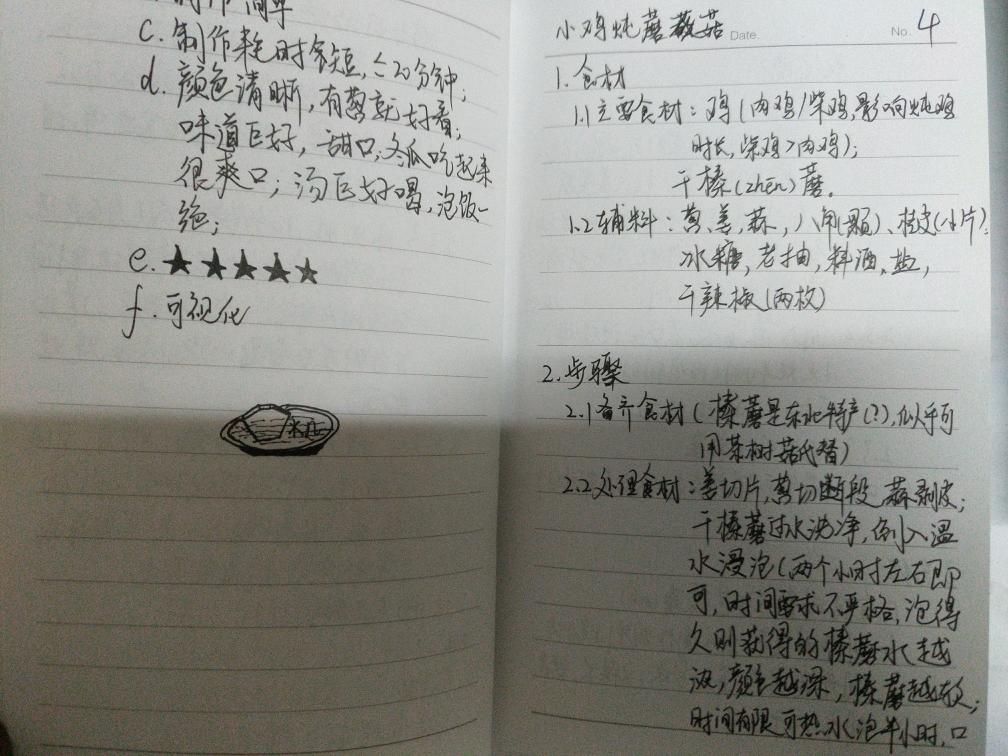 制作简单
c. 制作耗时多短, ≤20分钟;
d. 颜色清晰, 有葱就好看;
味道巨好, 甜口; 冬瓜吃起来
很爽口; 汤巨好喝, 泡饭一
绝;
e. ★★★★★
f. 可视化
小鸡炖蘑菇
Date.
No. 4
1. 食材
1.1 主要食材: 鸡(肉鸡/柴鸡,影响炖鸡
时长, 柴鸡>肉鸡);
干榛(zhēn)蘑。
1.2 辅料: 葱、姜、蒜, 八角(1颗)、桂皮(小片),
冰糖, 老抽, 料酒, 盐,
干辣椒(两枚)
2. 步骤
2.1 备齐食材(榛蘑是东北特产(?), 似乎可
用茶树菇代替)
2.2 处理食材: 姜切片, 葱切断段, 蒜剥皮;
干榛蘑过水洗净, 倒入温
水浸泡(两个小时左右即
可, 时间要求不严格, 泡得
久则获得的榛蘑水越
浓, 颜色越深, 榛蘑越软;
时间有限可热水泡半小时, 口